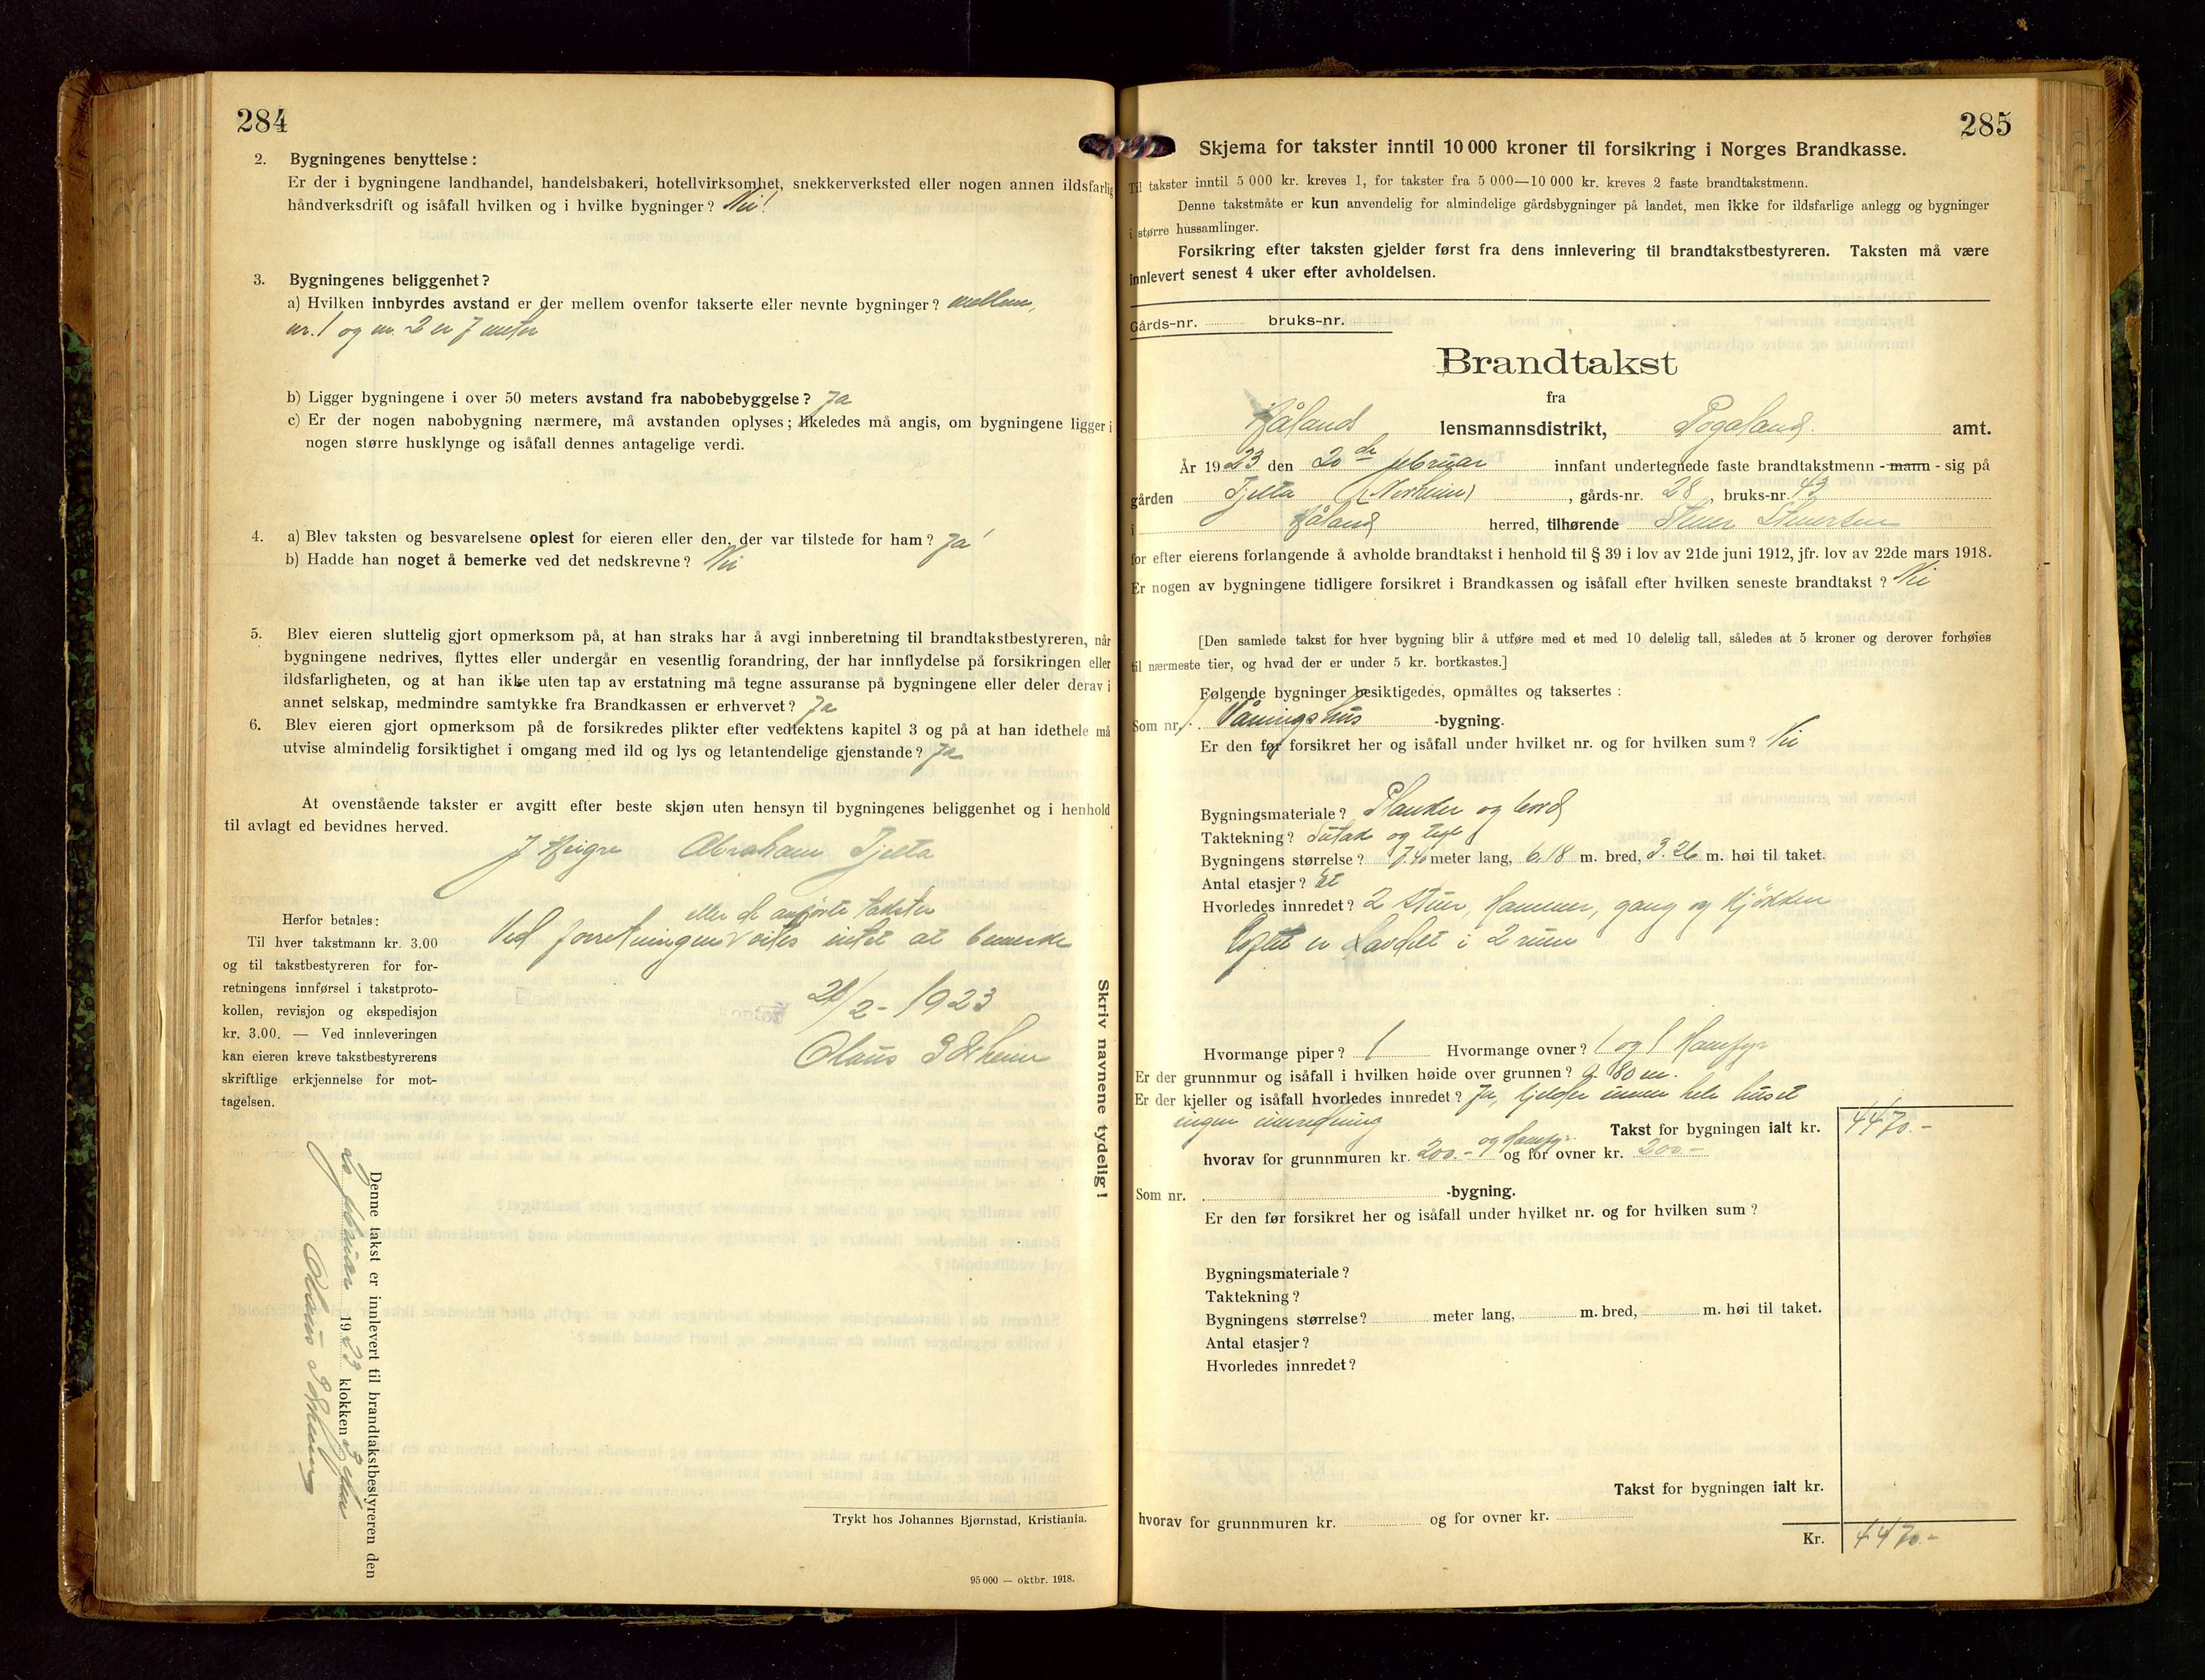 284
2. Bygningenes benyttelse:
Er der i bygningene landhandel, handelsbakeri, hotellvirksomhet, snekkerverksted eller nogen annen ildsfarlig
håndverksdrift og isåfall hvilken og i hvilke bygninger? Nei!
3. Bygningenes beliggenhet?
a) Hvilken innbyrdes avstand er der mellem ovenfor takserte eller nevnte bygninger? mellem
nr. 1 og nr. 2 er 7 meter
b) Ligger bygningene i over 50 meters avstand fra nabobebyggelse? Ja
c) Er der nogen nabobygning nærmere, må avstanden oplyses; likeledes må angis, om bygningene ligger i
nogen større husklynge og isåfall dennes antagelige verdi.
4. a) Blev taksten og besvarelsene oplest for eieren eller den, der var tilstede for ham? Ja!
b) Hadde han noget å bemerke ved det nedskrevne? Nei
5. Blev eieren sluttelig gjort opmerksom på, at han straks har å avgi innberetning til brandtakstbestyreren, når
bygningene nedrives, flyttes eller undergår en vesentlig forandring, der har innflydelse på forsikringen eller
ildsfarligheten, og at han ikke uten tap av erstatning må tegne assuranse på bygningene eller deler derav i
annet selskap, medmindre samtykke fra Brandkassen er erhvervet? Ja
6. Blev eieren gjort opmerksom på de forsikredes plikter efter vedtektens kapitel 3 og på at han idethele må
utvise almindelig forsiktighet i omgang med ild og lys og letantendelige gjenstande? Ja
At ovenstående takster er avgitt efter beste skjøn uten hensyn til bygningenes beliggenhet og i henhold
til avlagt ed bevidnes herved.
J Heigre Abraham Tjelta
eller de anførte takster
Ved forretningen vites intet at bemerke
21/2 - 1923
Olaus
Herfor betales:
Til hver takstmann kr. 3.00
og til takstbestyreren for for-
retningens innførsel i takstproto-
kollen, revisjon og ekspedisjon
kr. 3.00. — Ved innleveringen
kan eieren kreve takstbestyrerens
skriftlige erkjennelse for mot-
tagelsen.
Skriv navnene tydelig!
Denne takst er innlevert til brandtakstbestyreren den
20 februar 1923 klokken
Olaus
Trykt hos Johannes Bjørnstad, Kristiania.
95 000 — oktbr. 1918.
285
Skjema for takster inntil 10 000 kroner til forsikring i Norges Brandkasse.
Til takster inntil 5 000 kr. kreves 1, for takster fra 5 000—10 000 kr. kreves 2 faste brandtakstmenn.
Denne takstmåte er kun anvendelig for almindelige gårdsbygninger på landet, men ikke for ildsfarlige anlegg og bygninger
i større hussamlinger.
Forsikring efter taksten gjelder først fra dens innlevering til brandtakstbestyreren. Taksten må være
innlevert senest 4 uker efter avholdelsen.
Gårds-nr. bruks-nr.
Brandtakst
fra
Håland lensmannsdistrikt, Rogaland amt.
År 1923 den 20de februar innfant undertegnede faste brandtakstmenn - mann - sig på
gården Tjelta (Norheim), gårds-nr. 28, bruks-nr. 43
i Håland herred, tilhørende
for efter eierens forlangende å avholde brandtakst i henhold til § 39 i lov av 21de juni 1912, jfr. lov av 22de mars 1918.
Er nogen av bygningene tidligere forsikret i Brandkassen og isåfall efter hvilken seneste brandtakst? Nei
[Den samlede takst for hver bygning blir å utføre med et med 10 delelig tall, således at 5 kroner og derover forhøies
til nærmeste tier, og hvad der er under 5 kr. bortkastes.]
Følgende bygninger besiktigedes, opmåltes og taksertes:
Som nr. 1. Våningshus -bygning.
Er den før forsikret her og isåfall under hvilket nr. og for hvilken sum? Nei
Bygningsmateriale? Planker og bord
Taktekning? Sutak og tegl
Bygningens størrelse? 7.40 meter lang, 6.18 m. bred, 3.26 m. høi til taket.
Antal etasjer? Et
Hvorledes innredet? 2 stuer, kammer, gang og kjøkken
Loftet er avdelt i 2 rum
Hvormange piper? 1 Hvormange ovner? 1 og 1 komfyr
Er der grunnmur og isåfall i hvilken høide over grunnen? 0.80 m.
Er der kjeller og isåfall hvorledes innredet? Ja, kjelder under hele huset
ingen innredning
Takst for bygningen ialt kr. 4470.-
hvorav for grunnmuren kr. 200.- og for ovner og komfyr kr. 200.-
Som nr. -bygning.
Er den før forsikret her og isåfall under hvilket nr. og for hvilken sum?
Bygningsmateriale?
Taktekning?
Bygningens størrelse? meter lang, m. bred, m. høi til taket.
Antal etasjer?
Hvorledes innredet?
Takst for bygningen ialt kr.
hvorav for grunnmuren kr. og for ovner kr.
Kr. 4470.-